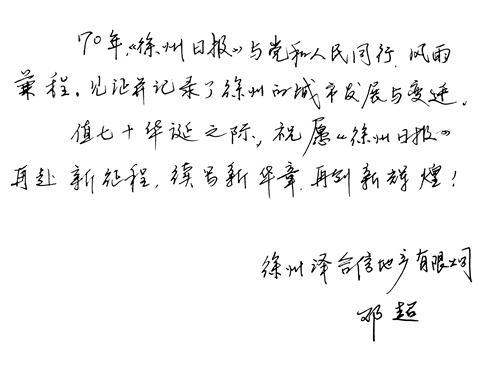 70年,《徐州日报》与党和人民同行,风雨
兼程,见证并记录了徐州的城市发展与变迁。
值七十华诞之际,祝愿《徐州日报》
再赴新征程,续写新华章,再创新辉煌!
徐州泽合信地产有限公司
邓超